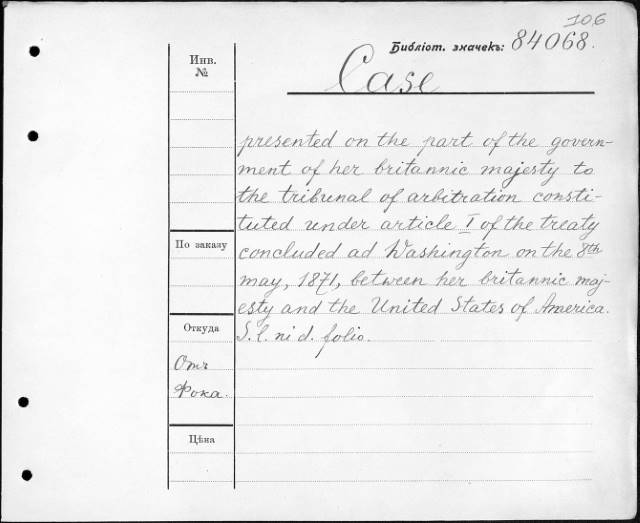 106
Библіот. значекъ: 84068.
Инв.
№
Case
presented on the part of the govern-
ment of her britannic majesty to
the tribunal of arbitration consti-
tuted under article I of the treaty
По заказу
concluded ad Washington on the 8th
may, 1871, between her britannic maj-
esty and the United States of America.
Откуда
S. l. ni d. folio.
Отъ
Фока.
Цѣна